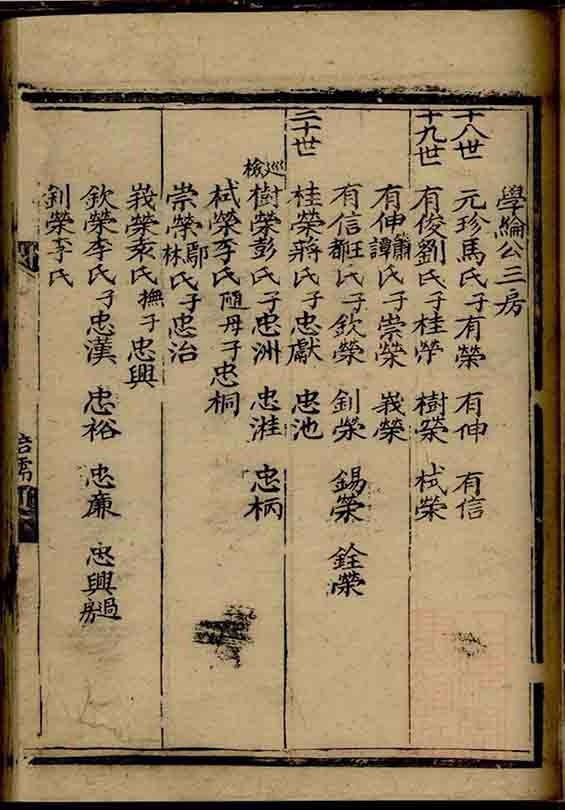 學綸公三房
十八世
元珍馬氏子有榮 有伸 有信
十九世
有俊劉氏子桂榮 樹榮 栻榮
有伸蕭譚氏子崇榮 峩榮
有信汪都氏子欽榮 釗榮 錫榮 銓榮
二十世
桂榮蔣氏子忠獻 忠池
巡檢
樹榮彭氏子忠洲 忠淮 忠柄
栻榮李氏隨母子忠桐
崇榮鄢林氏子忠治
峩榮袁氏撫子忠興
欽榮李氏子忠漢 忠裕 忠廉 忠興過房
釗榮李氏